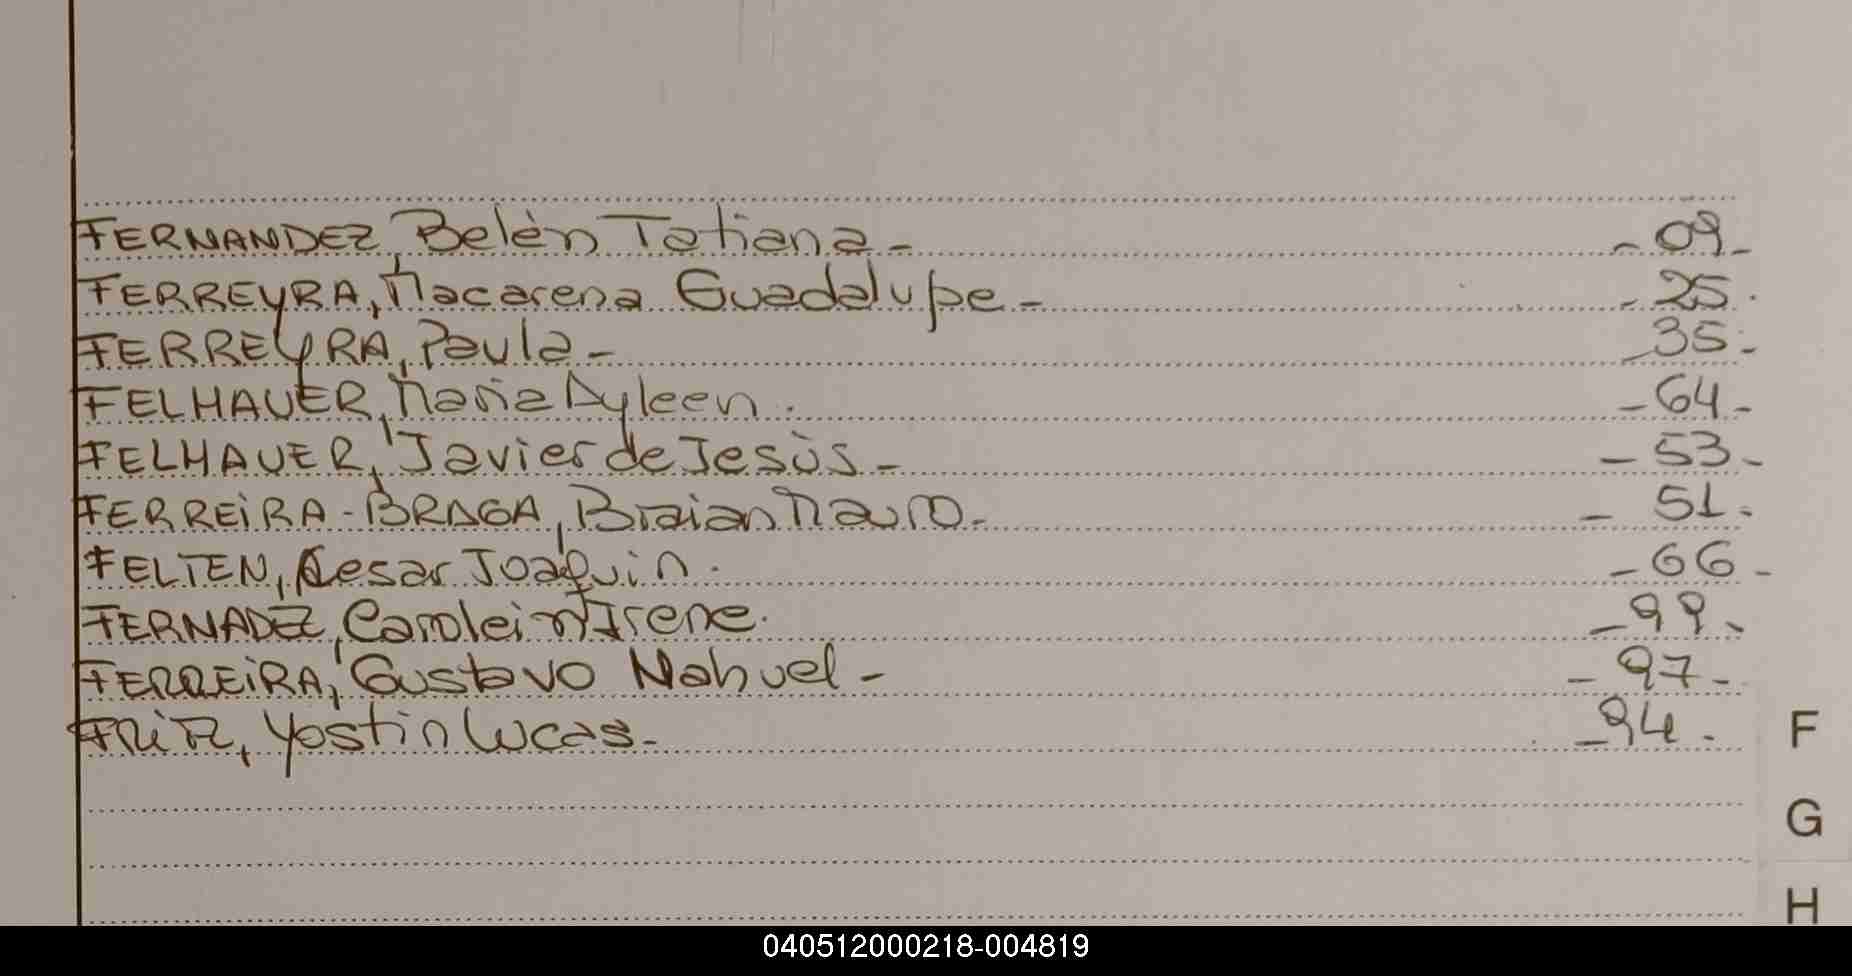 FERNANDEZ, Belén Tatiana - - 09 -
FERREYRA, Macarena Guadalupe - - 25.
FERREYRA, Paula - - 35 -
FELHAUER, Maria Ayleen. - 64 -
FELHAUER, Javier de Jesùs - - 53 -
FERREiRA - BRAGA, Braian Mauro - - 51 -
FELTEN, Cesar Joaquin. - 66 -
FERNADEZ, Carolein Irene. - 99 -
FERREiRA, Gustavo Nahuel - - 97 -
Yostin Lucas - - 94 -
F
G
H
040512000218-004819